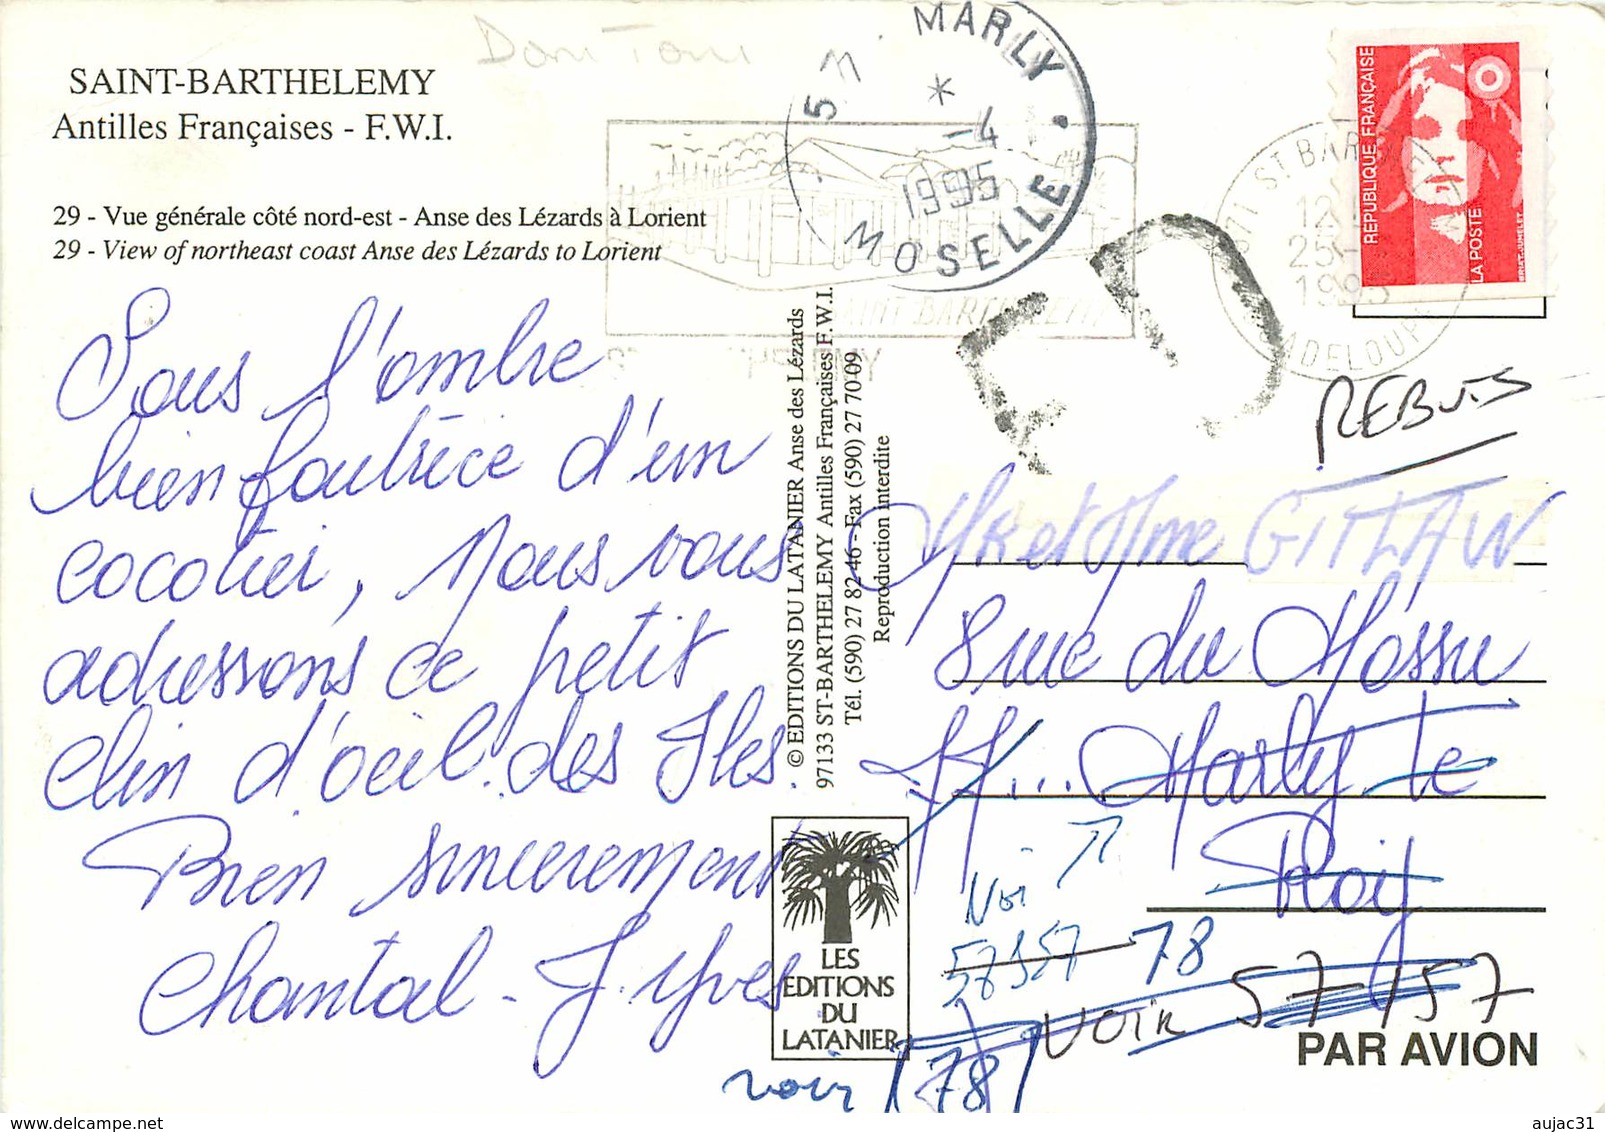 SAINT-BARTHELEMY
Antilles Françaises - F.W.I.
29 - Vue générale côté nord-est - Anse des Lézards à Lorient
29 - View of northeast coast Anse des Lézards to Lorient
Sous l'ombre
bien foutrice d'un
cocotier, Nous vous
adressons ce petit
clin d'oeil des Iles.
Bien sincerement
Chantal - J. Yves
© EDITIONS DU LATANIER Anse des Lézards
97133 ST-BARTHELEMY Antilles Françaises F.W.I.
Tél. (590) 27 82 46 - Fax (590) 27 70 09
Reproduction interdite
LES
EDITIONS
DU
LATANIER
57 MARLY
*
-4
1995
MOSELLE
SAINT BARTHELEMY
971 ST BARTHELEMY
25
1995
GUADELOUPE
REPUBLIQUE FRANÇAISE
LA POSTE
BRIAT-JUMELET
REBUTS
Mr et Mme GITTLAW
8 rue du
Marly Le
Roy
57157 78
VOIR 57157
voir (78)
PAR AVION
aujac31